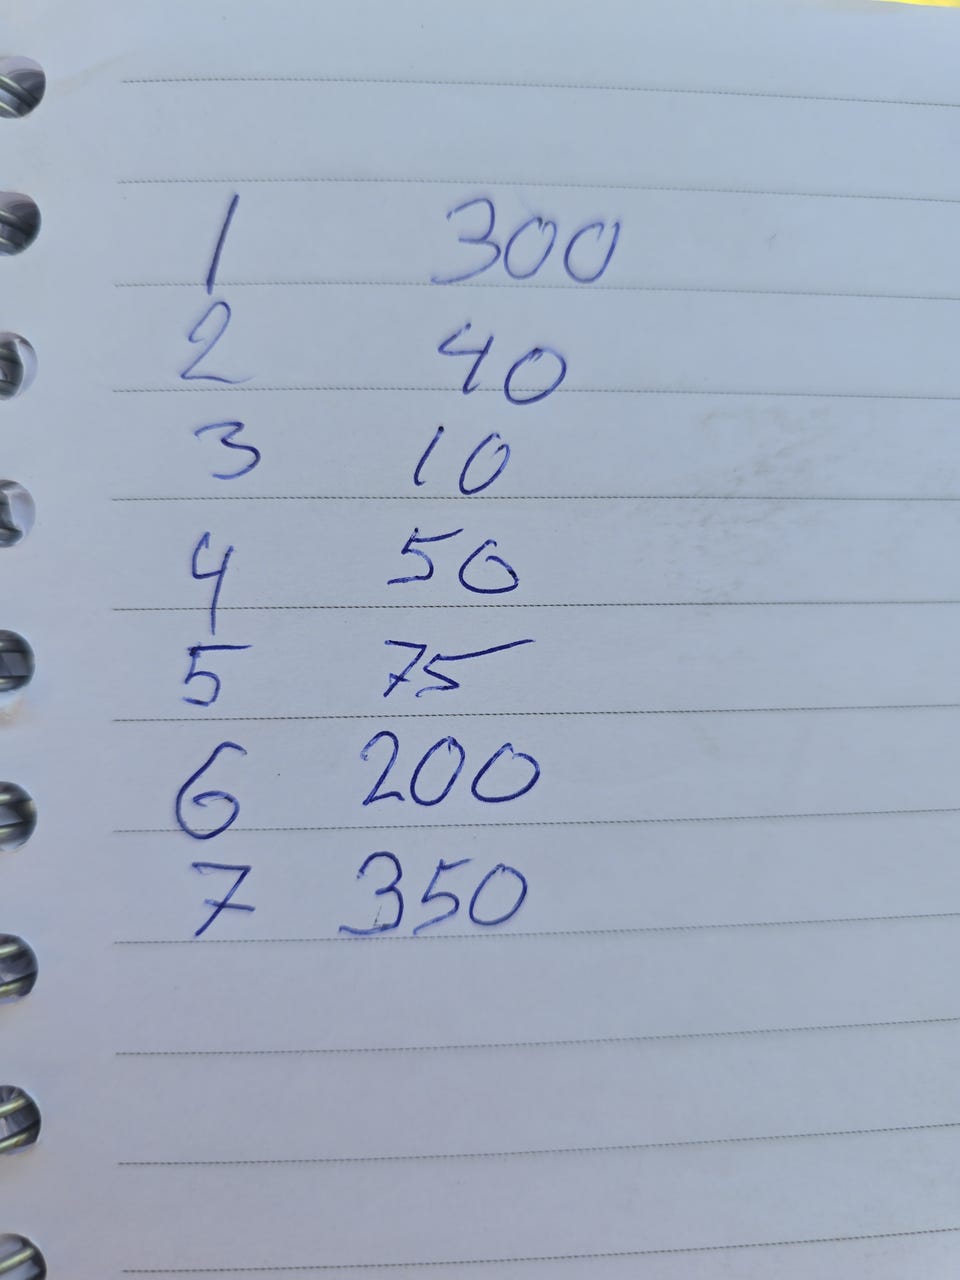 1 300
2 40
3 10
4 50
5 75
6 200
7 350